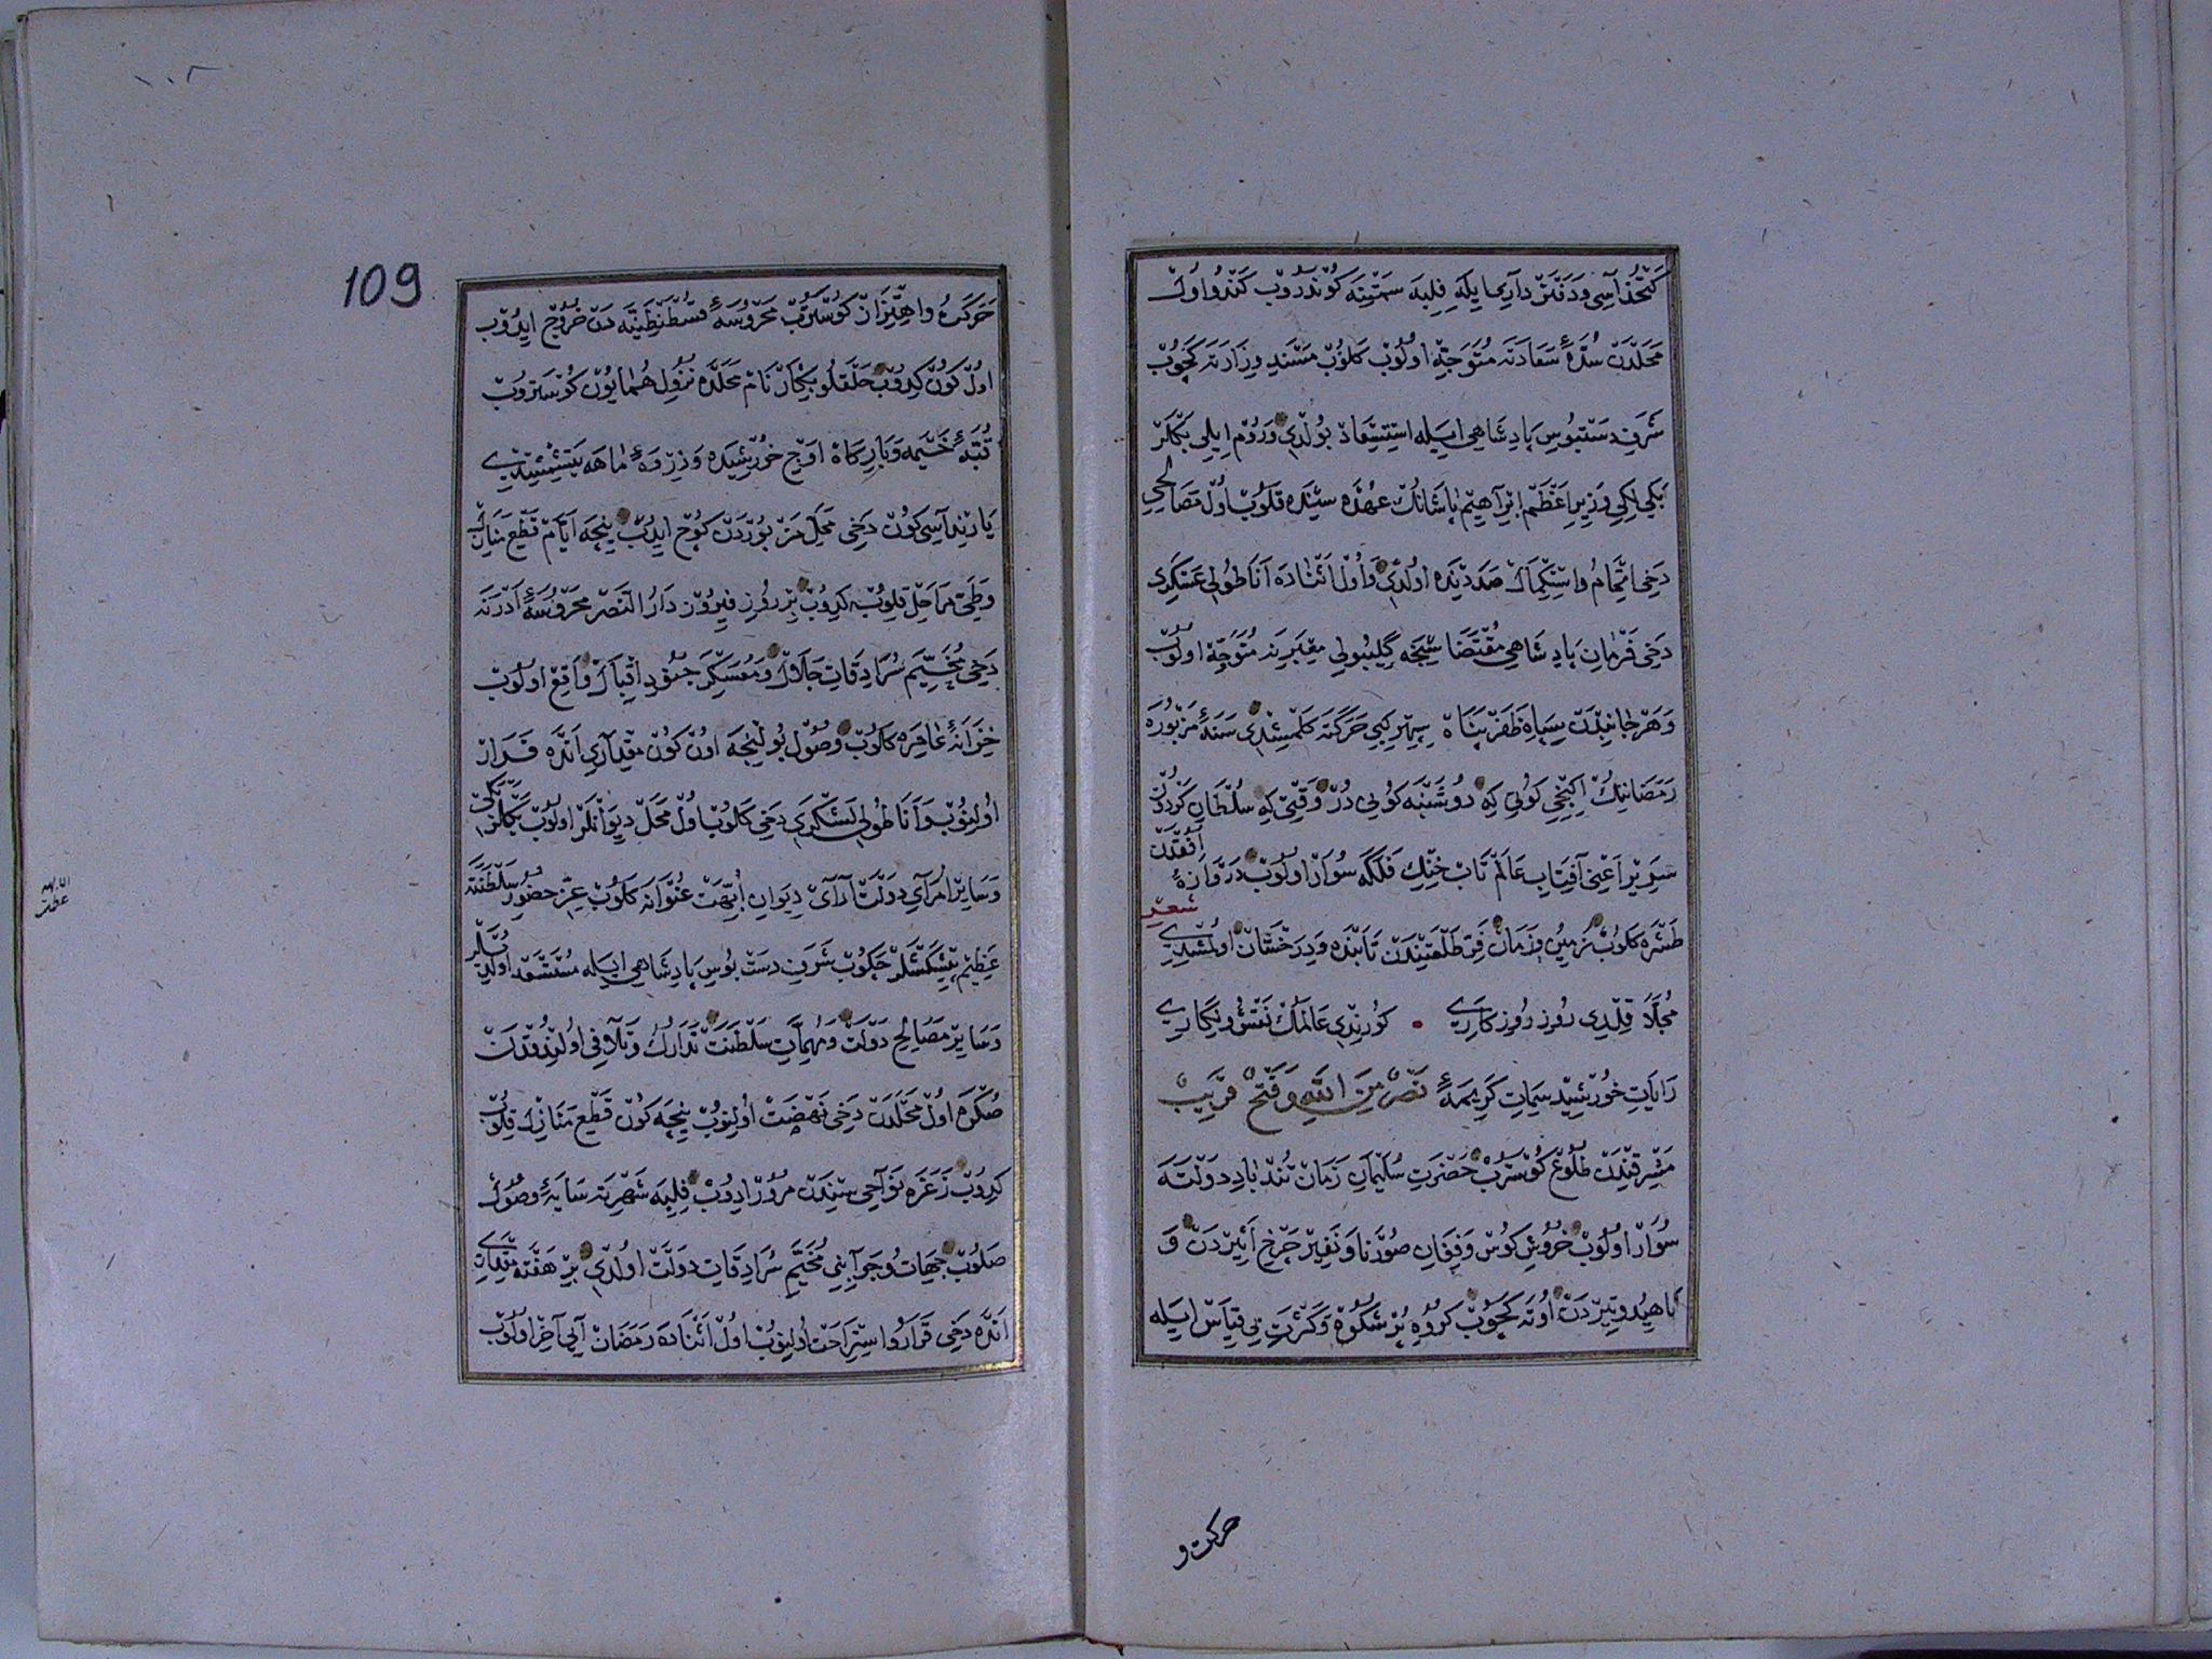 كتخداسی و دفترداریمایله فلبه سمتینه كوندروب كندو اول
محلدن سدهٔ سعادته متوجه اولوب كلوب مسند وزارته كچوب
شرف دستبوس پادشاهی ایله استسعاد بولدی و روم ایلی بكلر
بكیلكی وزیر اعظم ابراهیم پاشانك عهده سنده قلوب اول مصالحی
دخی اتمام و استكمال صددنده اولدی و اول اثناده اناطولی عسكری
دخی فرمان پادشاهی مقتضاسنجه كلیبولی معبرینه متوجه اولوب
و هر جانبدن سپاه ظفر پناه سپهر كبی حركته كلمشیدی سنهٔ مزبوره
رمضاننك اكنجی كونی كه دوشنبه كونی در وقتی كه سلطان كردون
سریر اعنی آفتاب عالم تاب خنك فلكه سوار اولوب دروازهٔ افقدن
طشره كلوب زمین و زمان فر طلعتندن تابنده و درخشان اولمشیدی شعر
مجلا قلدی روز روزكاری • كورندی عالمك نقش و نكاری
رایات خورشید سمات كریمهٔ نصر من الله و فتح قریب
مشرقندن طلوع كوستروب حضرت سلیمان زمان تند باد دولته
سوار اولوب خروش كوس و فغان صورنا و نفیر چرخ اثیردن و
ناهید و تیردن اوته كچوب كروه پر شكوه و كثرت بی قیاس ایله
حركت و
109
١٠٨
حركت و اهتزاز كوستروب محروسهٔ قسطنطنیه دن خروج ایدوب
اول كون كیدوب حلقلو بیكار نام محلده نزول همایون كوستروب
قبهٔ خیمه و باركاه اوج خورشیده و ذروهٔ ماهه یتشمشیدی
یارنداسی كون دخی محل مزبوردن كوچ ایدوب نیجه ایام قطع منازل
و طی مراحل قلوب كیدوب بر روز فیروز دار النصر محروسهٔ ادرنه
دخی مخیم سرادقات جلال و معسكر جنود اقبال واقع اولوب
خزانهٔ عامره كلوب وصول بولنجه اون كون مقداری انده قرار
اولنوب و اناطولی لشكری دخی كلوب اول محل دیوانلر اولوب بكلربكی
و سایر امرای دولت آرای دیوان ابهت عنوانه كلوب عز حضور سلطنته
عظیم پیشكشلر چكوب شرف دست بوس پادشاهی ایله مستسعد اولدیلر
و سایر مصالح دولت و مهمات سلطنت تدارك و تلافی اولندوقدن
صكره اول محلدن دخی نهضت اولنوب نیجه كون قطع منازل قلوب
كیدوب زغره نواحی سندن مرور ایدوب فلبه شهرینه سایهٔ وصول
صلوب جهات و جوانبی مخیم سرادقات دولت اولدی بر هفته مقداری
انده دخی قرار و استراحت اولنوب اول اثناده رمضان آیی آخر اولوب